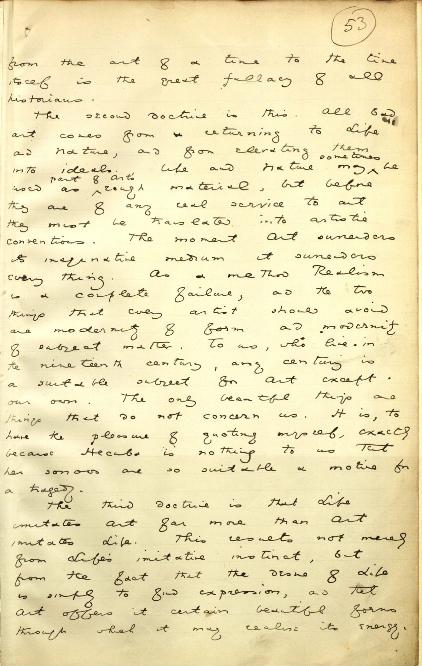 53
from the art of a time to the time
itself is the great fallacy of all
historians.
The second doctrine is this. All bad
art comes from returning to Life
and Nature, and from elevating them
into ideals. Life and Nature may sometimes be
used as part of Art's rough material, but before
they are of any real service to art
they must be translated into artistic
conventions. The moment Art surrenders
its imaginative medium it surrenders
everything. As a method Realism
is a complete failure, and the two
things that every artist should avoid
are modernity of form and modernity
of subject matter. To us, who live in
the nineteenth century, any century is
a suitable subject for art except
our own. The only beautiful things are
things that do not concern us. It is, to
have the pleasure of quoting myself, exactly
because Hecuba is nothing to us that
her sorrows are so suitable a motive for
a tragedy.
The third doctrine is that Life
imitates art far more than Art
imitates Life. This results not merely
from Life's imitative instinct, but
from the fact that the desire of Life
is simply to find expression, and that
Art offers it certain beautiful forms
through which it may realise its energy.